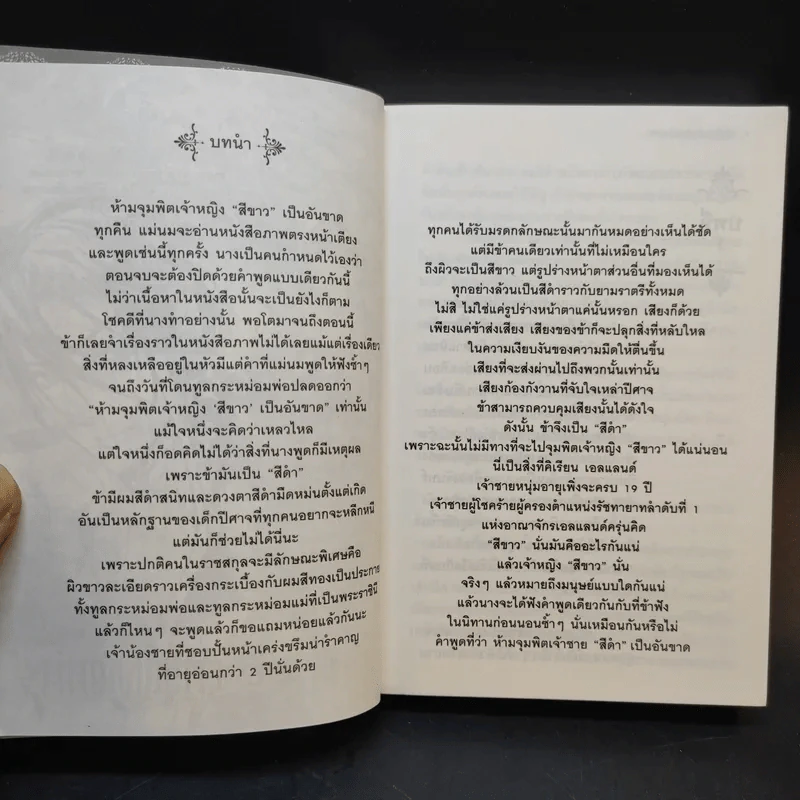 บทนำ
ห้ามจุมพิตเจ้าหญิง "สีขาว" เป็นอันขาด
ทุกคืน แม่นมจะอ่านหนังสือภาพตรงหน้าเตียง
และพูดเช่นนี้ทุกครั้ง นางเป็นคนกำหนดไว้เองว่า
ตอนจบจะต้องปิดด้วยคำพูดแบบเดียวกันนี้
ไม่ว่าเนื้อหาในหนังสือนั้นจะเป็นยังไงก็ตาม
โชคดีที่นางทำอย่างนั้น พอโตมาจนถึงตอนนี้
ข้าก็เลยจำเรื่องราวในหนังสือภาพไม่ได้เลยแม้แต่เรื่องเดียว
สิ่งที่หลงเหลืออยู่ในหัวมีแต่คำที่แม่นมพูดให้ฟังซ้ำๆ
จนถึงวันที่โดนทูลกระหม่อมพ่อปลดออกว่า
"ห้ามจุมพิตเจ้าหญิง 'สีขาว' เป็นอันขาด" เท่านั้น
แม้ใจหนึ่งจะคิดว่าเหลวไหล
แต่ใจหนึ่งก็อดคิดไม่ได้ว่าสิ่งที่นางพูดก็มีเหตุผล
เพราะข้ามันเป็น "สีดำ"
ข้ามีผมสีดำสนิทและดวงตาสีดำมืดหม่นตั้งแต่เกิด
อันเป็นหลักฐานของเด็กปีศาจที่ทุกคนอยากจะหลีกหนี
แต่มันก็ช่วยไม่ได้นี่นะ
เพราะปกติคนในราชสกุลจะมีลักษณะพิเศษคือ
ผิวขาวละเอียดราวเครื่องกระเบื้องกับผมสีทองเป็นประกาย
ทั้งทูลกระหม่อมพ่อและทูลกระหม่อมแม่ที่เป็นพระราชินี
แล้วก็ไหนๆ จะพูดแล้วก็ขอแถมหน่อยแล้วกันนะ
เจ้าน้องชายที่ชอบปั้นหน้าเคร่งขรึมน่ารำคาญ
ที่อายุอ่อนกว่า 2 ปีนั่นด้วย
ทุกคนได้รับมรดกลักษณะนั้นมากันหมดอย่างเห็นได้ชัด
แต่มีข้าคนเดียวเท่านั้นที่ไม่เหมือนใคร
ถึงผิวจะเป็นสีขาว แต่รูปร่างหน้าตาส่วนอื่นที่มองเห็นได้
ทุกอย่างล้วนเป็นสีดำราวกับยามราตรีทั้งหมด
ไม่สิ ไม่ใช่แค่รูปร่างหน้าตาแค่นั้นหรอก เสียงก็ด้วย
เพียงแค่ข้าส่งเสียง เสียงของข้าก็จะปลุกสิ่งที่หลับใหล
ในความเงียบงันของความมืดให้ตื่นขึ้น
เสียงที่จะส่งผ่านไปถึงพวกนั้นเท่านั้น
เสียงก้องกังวานที่จับใจเหล่าปีศาจ
ข้าสามารถควบคุมเสียงนั้นได้ดังใจ
ดังนั้น ข้าจึงเป็น "สีดำ"
เพราะฉะนั้นไม่มีทางที่จะไปจุมพิตเจ้าหญิง "สีขาว" ได้แน่นอน
นี่เป็นสิ่งที่คิเรียน เอลแลนด์
เจ้าชายหนุ่มอายุเพิ่งจะครบ 19 ปี
เจ้าชายผู้โชคร้ายผู้ครองตำแหน่งรัชทายาทลำดับที่ 1
แห่งอาณาจักรเอลแลนด์ครุ่นคิด
"สีขาว" นั่นมันคืออะไรกันแน่
แล้วเจ้าหญิง "สีขาว" นั่น
จริงๆ แล้วหมายถึงมนุษย์แบบใดกันแน่
แล้วนางจะได้ฟังคำพูดเดียวกันกับที่ข้าฟัง
ในนิทานก่อนนอนซ้ำๆ นั่นเหมือนกันหรือไม่
คำพูดที่ว่า ห้ามจุมพิตเจ้าชาย "สีดำ" เป็นอันขาด